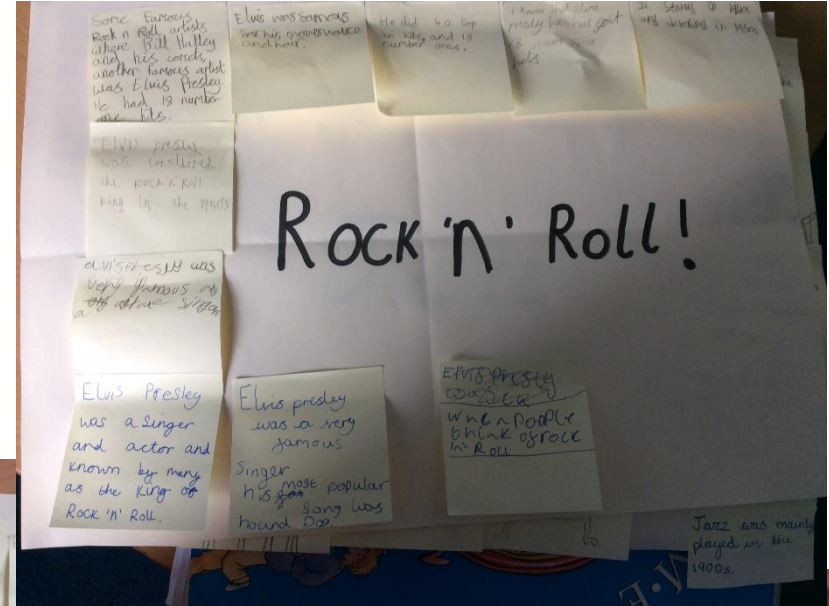 Some Famous
Rock n Roll artists
where Bill Halley
and his comets,
another famous artist
was Elvis Presley.
He had 18 number
one hits.
Elvis was famous
for his moves voice
and hair.
He did 40 top
ten hits, and 18
number ones.
I know that elvis
presley has has got
18 number one
hits
It started in 1940s
and developed in 1950s
Elvis presley
was considered
the Rock n' Roll
king in the 1950s
elvis Presly was
very famous as
a singer
Rock 'n' Roll!
Elvis Presley
was a singer
and actor and
known by many
as the King of
Rock 'n' Roll.
Elvis presley
was a very
famous
singer
his most popular
song was
hound Dog.
Elvis Presly
was
when people
think of rock
'n' Roll
Jazz was mainly
played in the
1900s.
M.E